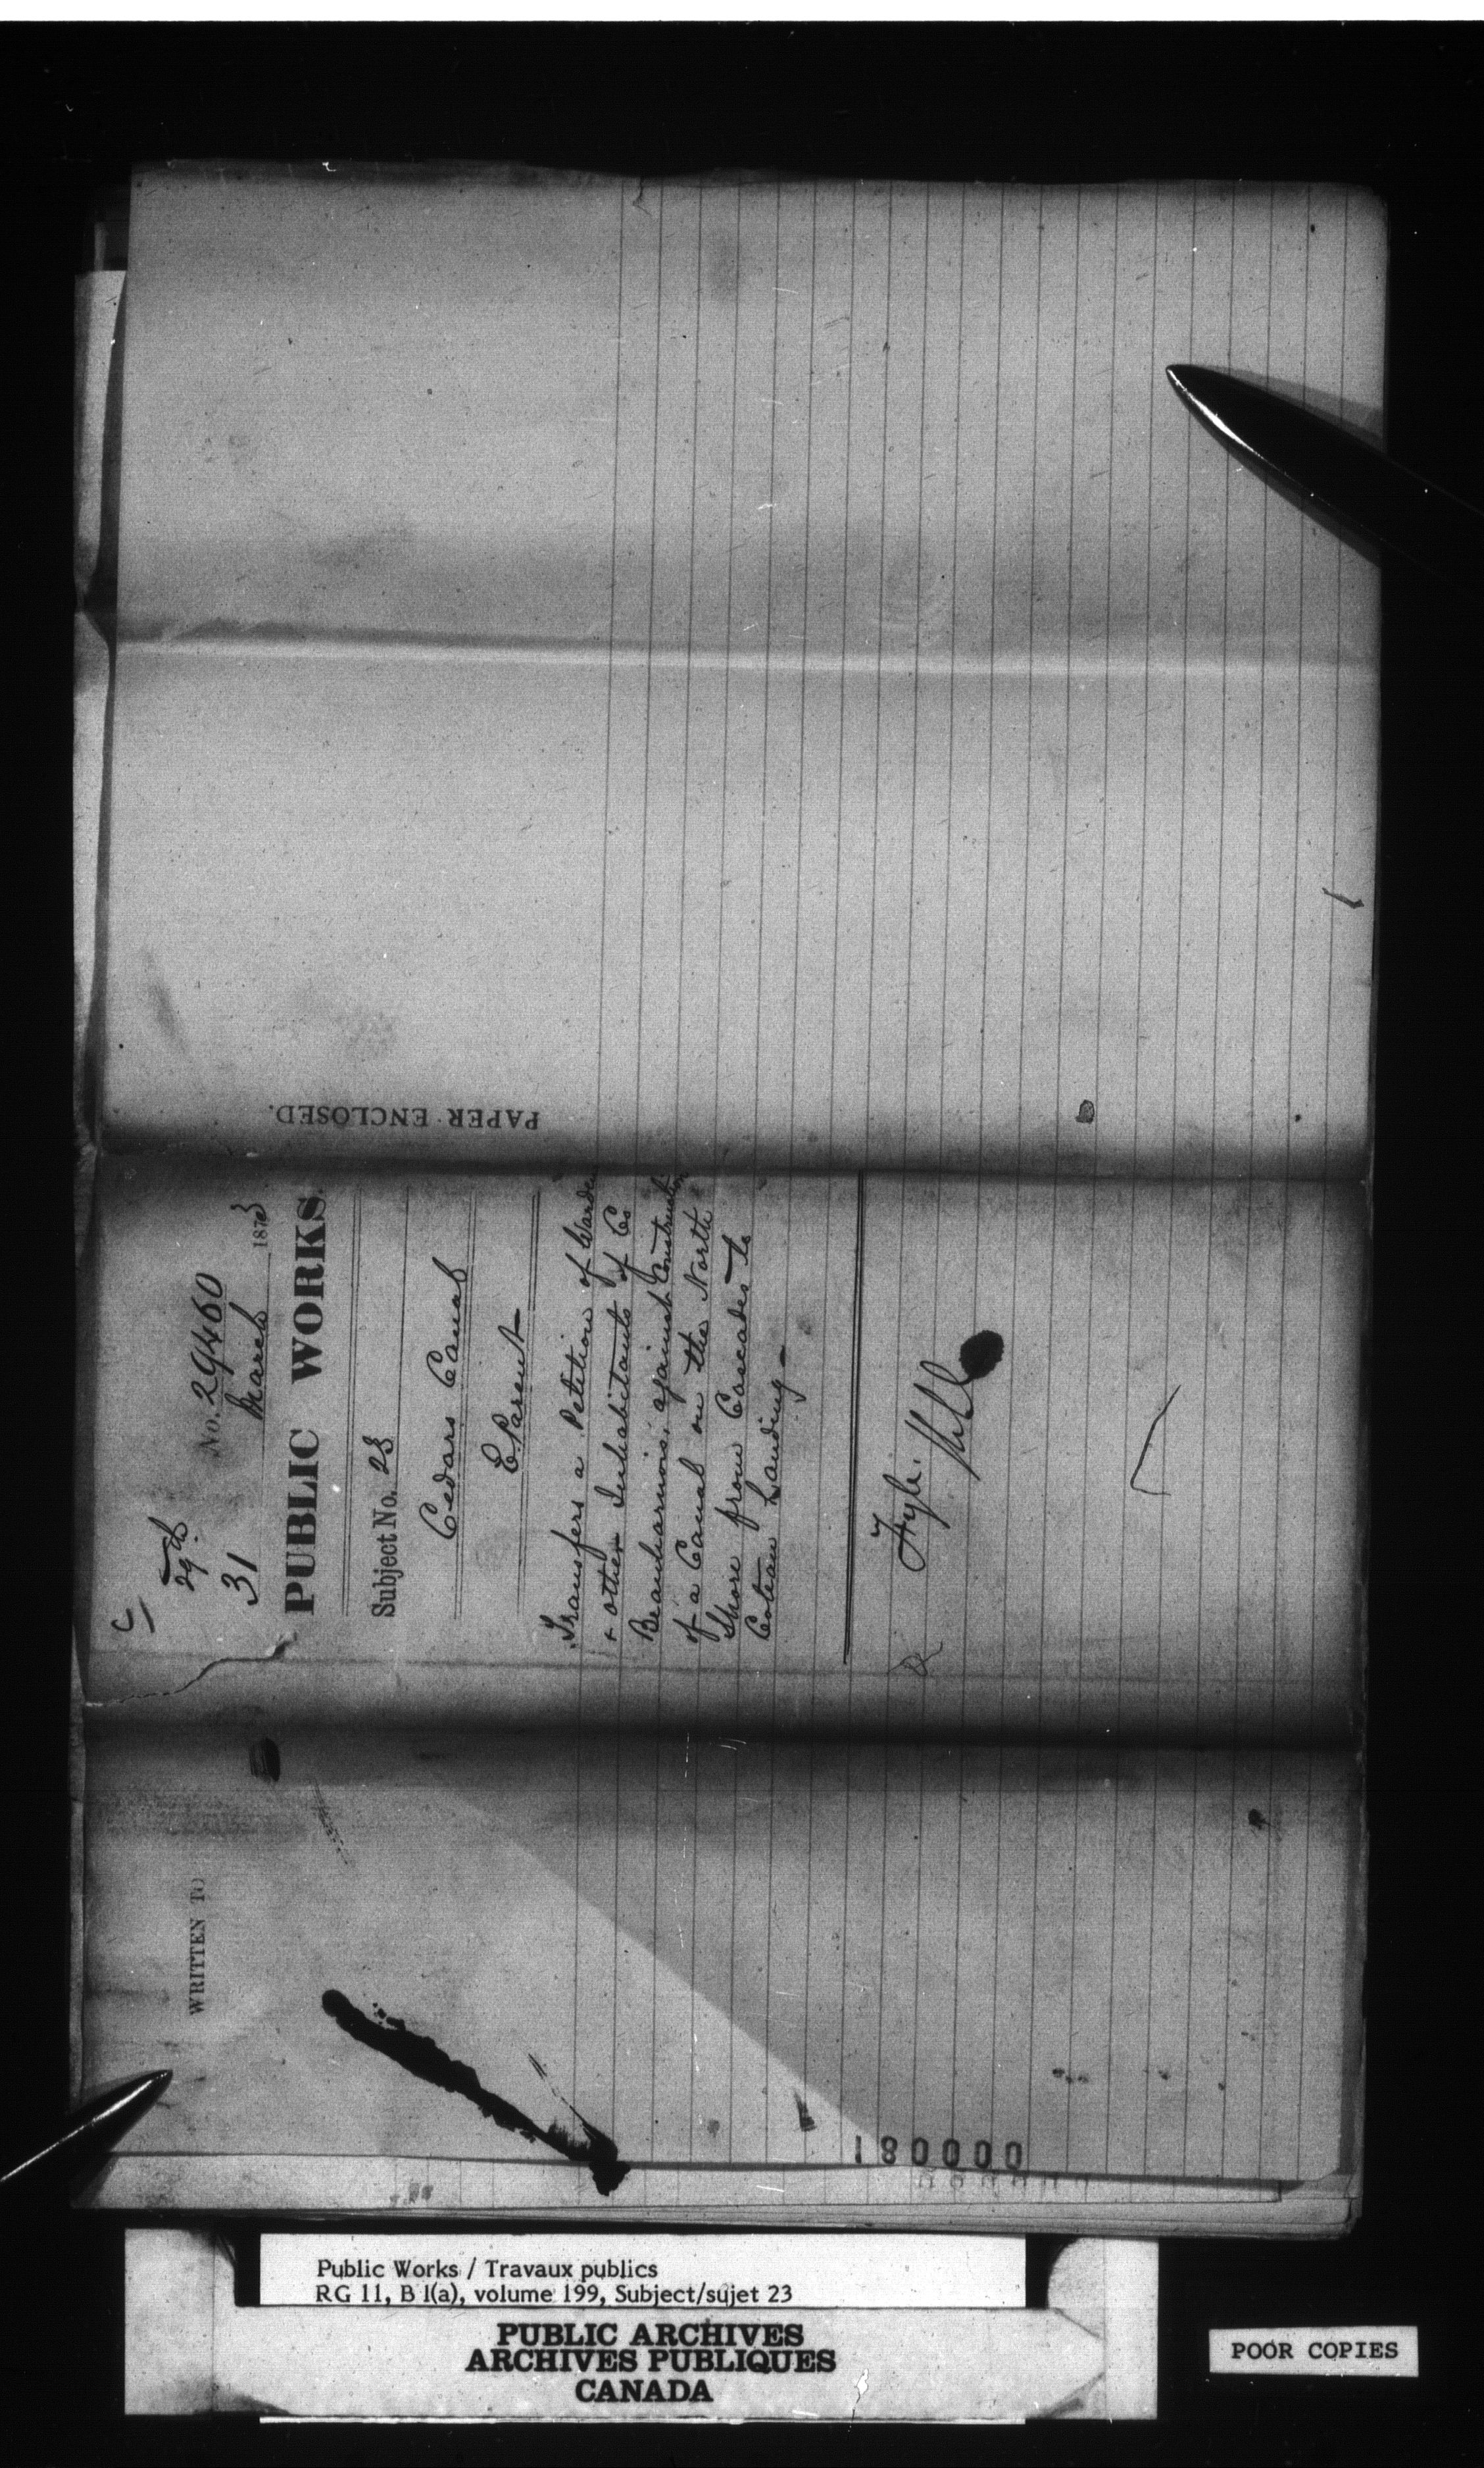 PAPER ENCLOSED.
No. 29460
29th
31 March 1873
PUBLIC WORKS.
Subject No. 23
Cedars Canal
E. Parent
Transfers a Petition of Warden
+ other Inhabitants of Co
Beauharnois, against Construction
of a Canal on the North
Shore from Cascades to
Coteau Landing -
Fyle.
WRITTEN TO
180000
Public Works / Travaux publics
RG 11, B 1(a), volume 199, Subject/sujet 23
PUBLIC ARCHIVES
ARCHIVES PUBLIQUES
CANADA
POOR COPIES